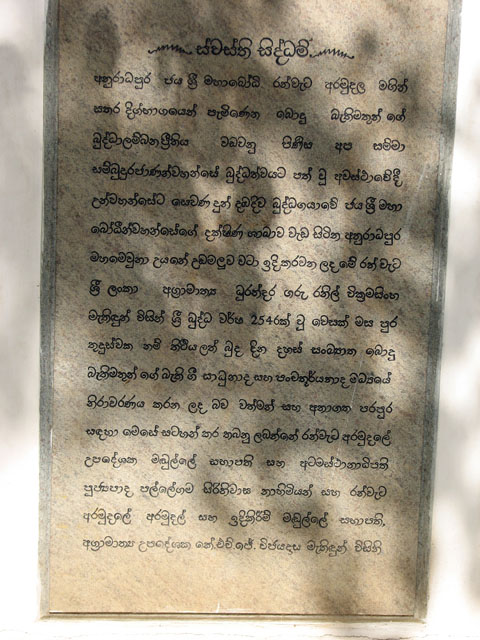 ස්වස්ති සිද්ධම්
අනුරාධපුර ජය ශ්‍රී මහාබෝධි රන්වැට අරමුදල මගින්
සතර දිග්භාගයෙන් පැමිණෙන බොදු බැතිමතුන් ගේ
බුද්ධාලම්බන ප්‍රීතිය වඩවනු පිණිස අප සම්මා
සම්බුදුරජාණන්වහන්සේ බුද්ධත්වයට පත් වූ අවස්ථාවේදී
උන්වහන්සේට සෙවණ දුන් දඹදිව බුද්ධගයාවේ ජය ශ්‍රී මහා
බෝධීන්වහන්සේගේ දක්ෂිණ ශාඛාව වැඩ සිටින අනුරාධපුර
මහමෙවුනා උයනේ උඩමලුව වටා ඉදි කරවන ලද මේ රන් වැට
ශ්‍රී ලංකා අග්‍රාමාත්‍ය ධුරන්ධර ගරු රනිල් වික්‍රමසිංහ
මැතිඳුන් විසින් ශ්‍රී බුද්ධ වර්ෂ 2546ක් වූ වෙසක් මස පුර
තුදුස්වක නම් තිථිය ලත් බුද දින දහස් සංඛ්‍යාත බොදු
බැතිමතුන් ගේ බැති ගී සාධුනාද සහ පංචතූර්යනාද මධ්‍යයේ
නිරාවරණය කරන ලද බව වත්මන් සහ අනාගත පරපුර
සඳහා මෙසේ සටහන් කර තබනු ලබන්නේ රන්වැට අරමුදලේ
උපදේශක මඬුල්ලේ සභාපති සහ අටමස්ථානාධිපති
පූජ්‍යපාද පල්ලේගම සිරිනිවාස නාහිමියන් සහ රන්වැට
අරමුදලේ අරමුදල් සහ ඉදිකිරීම් මඬුල්ලේ සභාපති,
අග්‍රාමාත්‍ය උපදේශක කේ.එච්.ජේ. විජයදාස මැතිඳුන් විසිනි